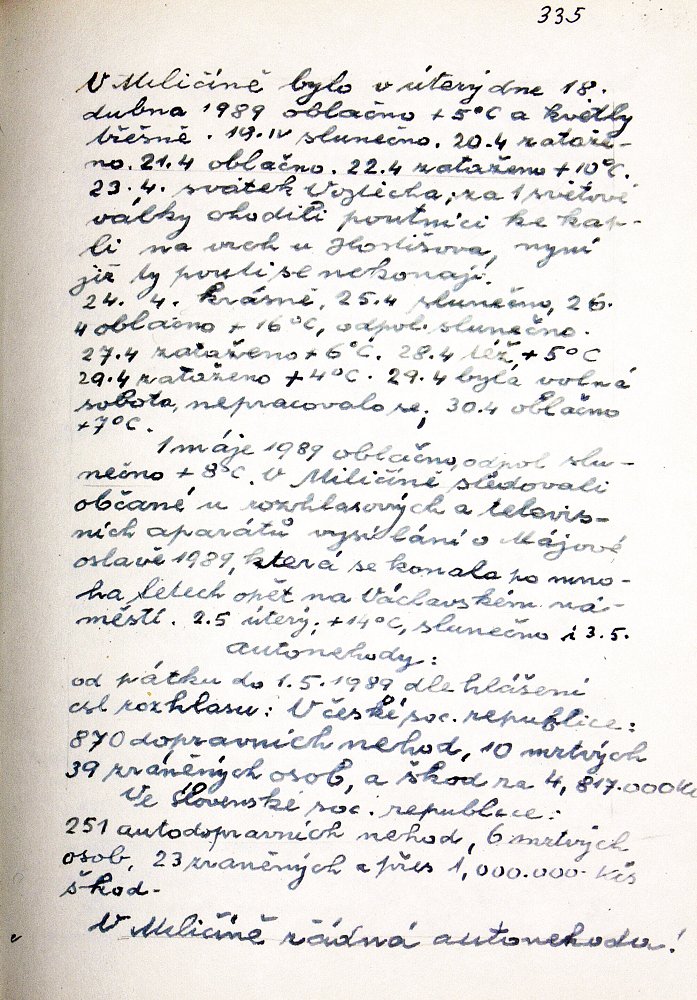 335
V Miličíně bylo v úterý dne 18.
dubna 1989 oblačno +5°C a květly
třešně. 19.IV slunečno. 20.4 zataže-
no. 21.4 oblačno. 22.4 zataženo +10°C.
23.4. svátek Vojtěcha, za 1 světové
války chodili poutníci ke kap-
li na vrch u Hostišova, nyní
již ty pouti se nekonají.
24. 4. krásně, 25.4 slunečno, 26.
4 oblačno + 16°C, odpol. slunečno.
27.4 zataženo + 6°C. 28.4 též, +5°C
29.4 zataženo +4°C. 29.4 byla volná
sobota, nepracovalo se, 30.4 oblačno
+7°C.
1 máje 1989 oblačno, odpol slu-
nečno + 8°C. V Miličíně sledovali
občané u rozhlasových a televis-
ních aparátů vysílání o Májové
oslavě 1989, která se konala po mno-
ha letech opět na Václavském ná-
městí. 2.5 úterý, +14°C, slunečno i 3.5.
Autonehody:
od pátku do 1.5.1989 dle hlášení
čsl rozhlasu: V české soc. republice:
870 dopravních nehod, 10 mrtvých
39 zraněných osob, a škod za 4,817.000 Kčs
Ve Slovenské soc. republice:
251 autodopravních nehod, 6 mrtvých
osob, 23 zraněných a přes 1,000.000 Kčs
škod.
V Miličíně žádná autonehoda!